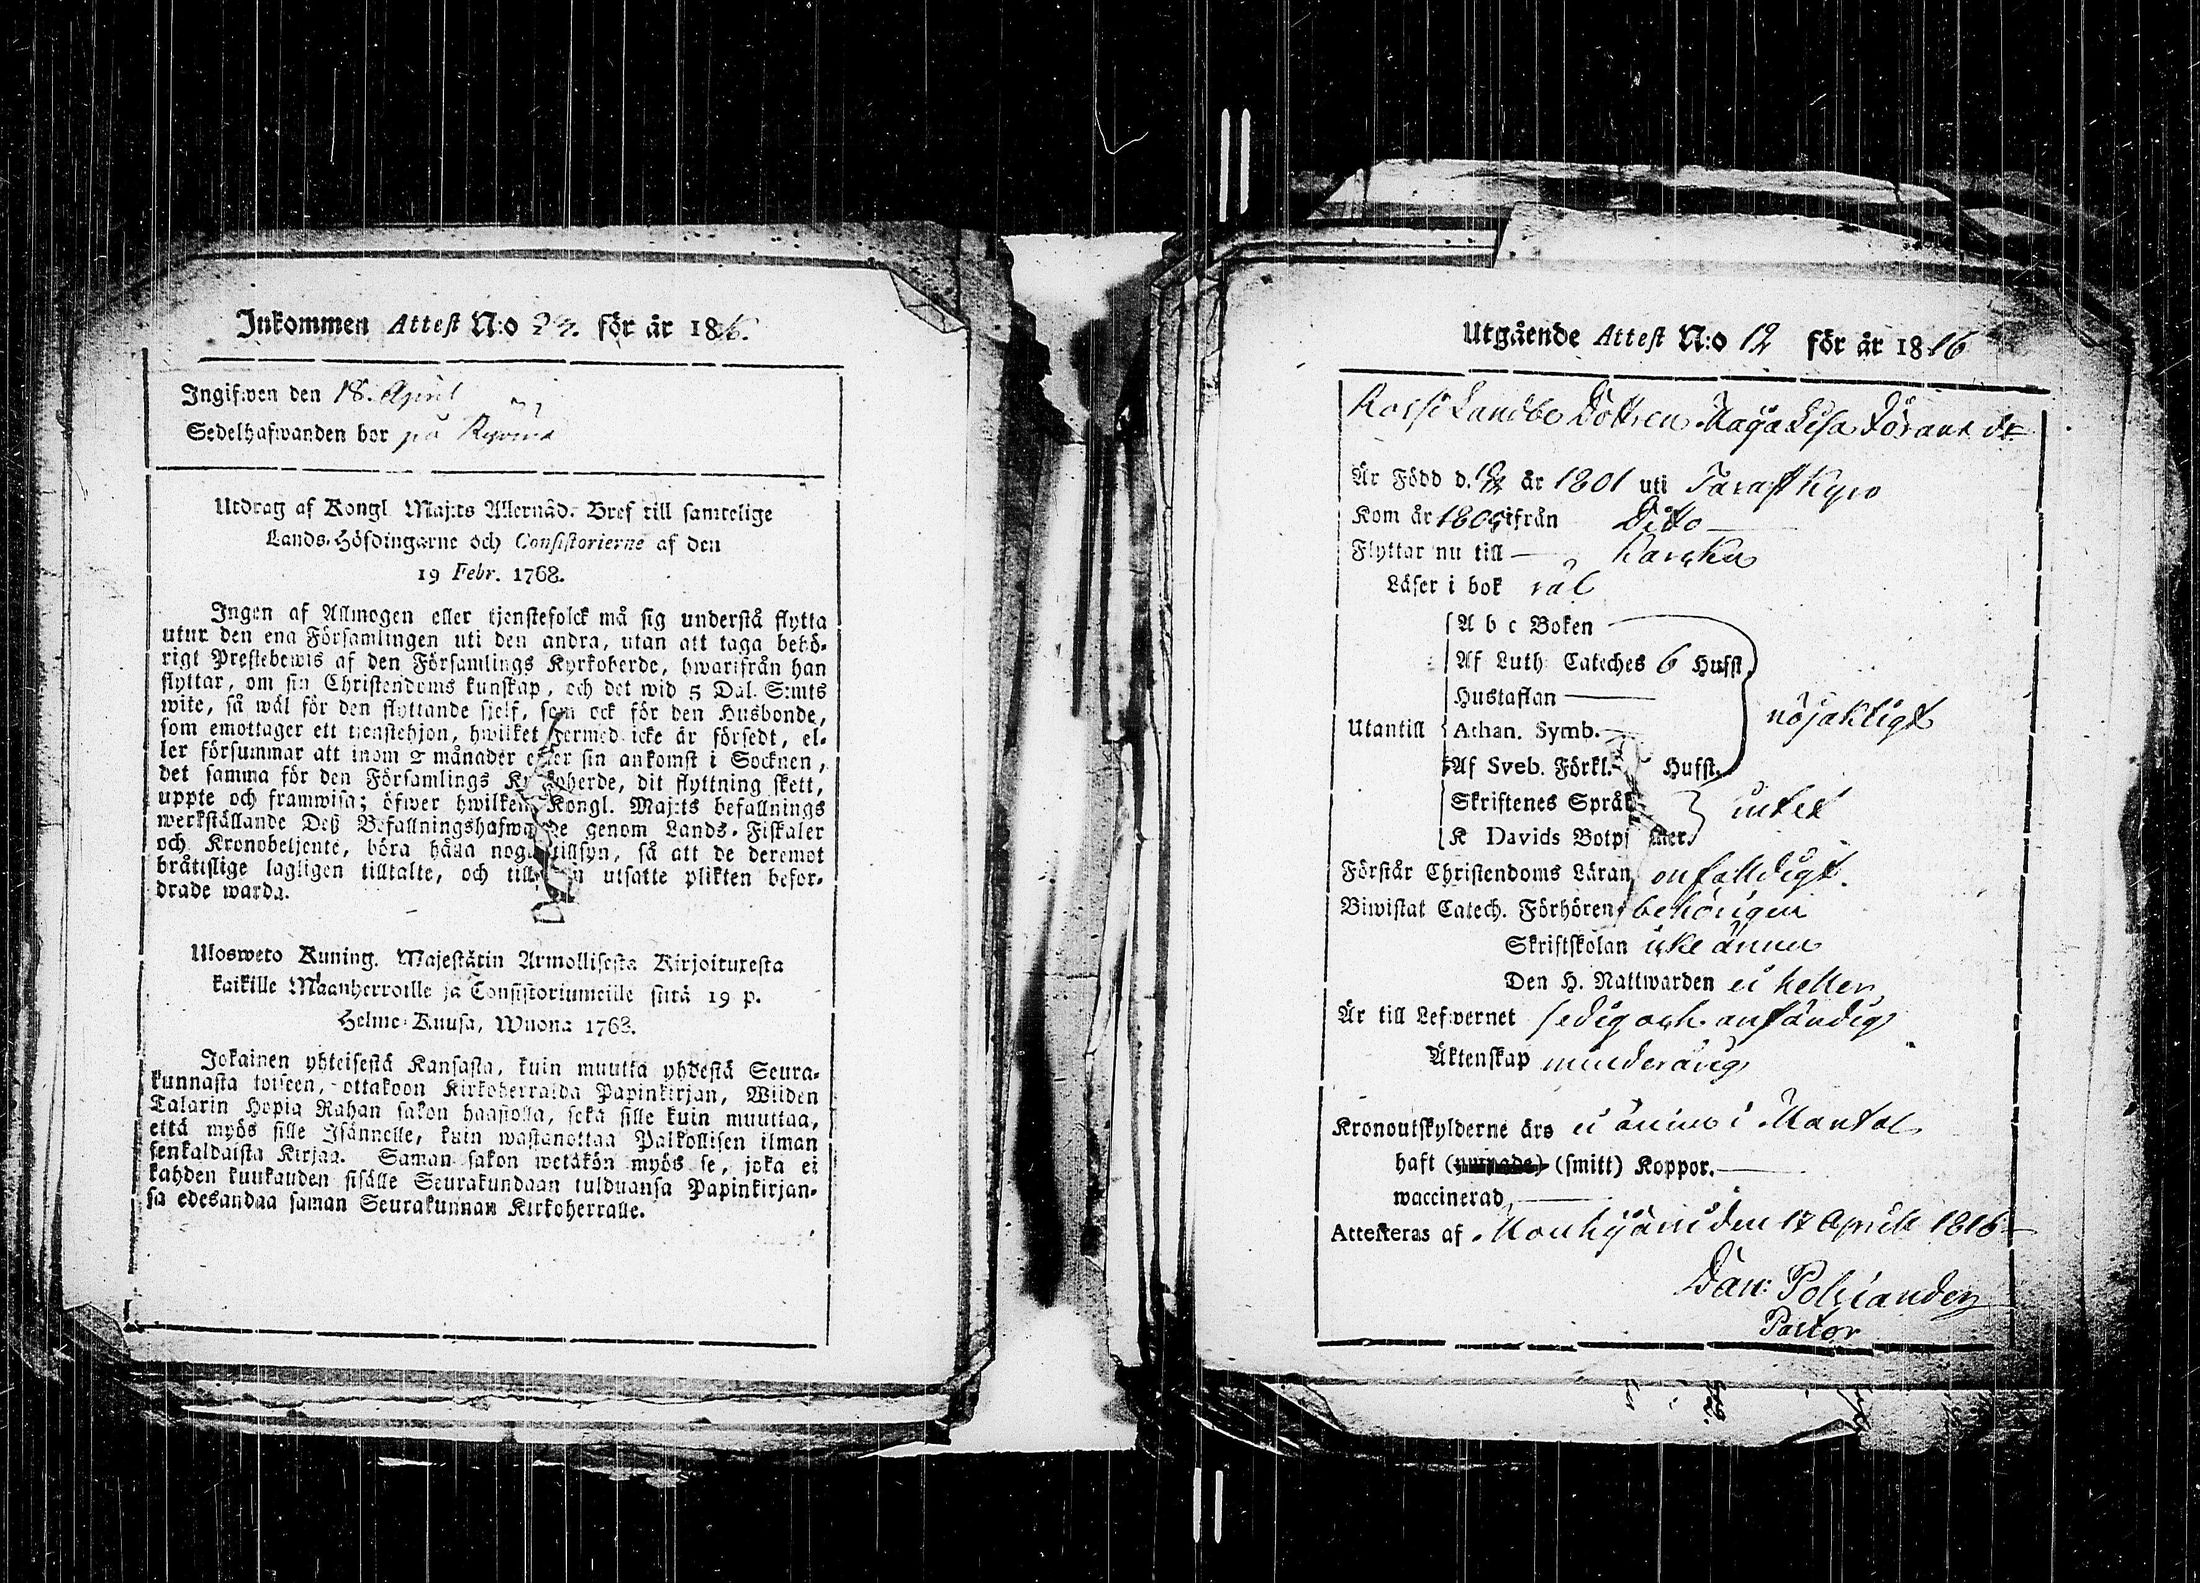 Inkommen Attest N:o för år 1816.
Ingifwen den 18. April
Sedelhafwanden bor på
Utdrag af Kongl Maj:ts Allernåd. Bref till samtelige
Lands-Höfdingarne och Consistorierne af den
19 Febr. 1768.
Ingen af Allmogen eller tjenstefolck må sig understå flytta
utur den ena Församlingen uti den andra, utan att taga behö-
rigt Prestebewis af den Församlings Kyrkoherde, hwarifrån han
flyttar, om sin Christendoms kunskap, och det wid 5 Dal. S:mts
wite, så wäl för den flyttande sjelf, som ock för den Husbonde,
som emottager ett tjenstehjon, hwilket thermed icke är försedt, el-
ler försummar att inom 2 månader efter sin ankomst i Socknen,
det samma för den Församlings Kyrkoherde, dit flyttning skett,
uppte och framwisa; öfwer hwilken Kongl. Maj:ts befallnings
werkställande Deß Befallningshafwande genom Lands-Fiskaler
och Kronobetjente, böra hålla noga tillsyn, så att de deremot
bråttslige lagligen tilltalte, och till den utsatte plikten befor-
drade warda.
Ulosweto Kuning. Majestätin Armollisesta Kirjoituxesta
kaikille Maanherroille ja Consistoriumeille siitä 19 p.
Helme-Kuusa, Wuona 1768.
Jokainen yhteisestä Kansasta, kuin muutta yhdestä Seura-
kunnasta toiseen, ottakoon Kirkoherralda Papinkirjan, Wiiden
Talarin Hopia Rahan sakon haastolla, sekä sille kuin muuttaa,
että myös sille Isännelle, kuin wastanottaa Palkollisen ilman
senkaldaista Kirjaa. Saman sakon wetäkön myös se, joka ei
kahden kuukauden sisälle Seurakundaan tulduansa Papinkirjan-
sa edesandaa saman Seurakunnan Kirkoherralle.
Utgående Attest N:o 12 för år 1816
Landbo Dottren Maja Lisa
Är Född d. år 1801 uti Tavastkyro
Kom år ifrån Ditto
Flyttar nu till Karcku
Läser i bok väl
A b c Boken
Af Luth: Cateches 6 Hufst.
Hustaflan
Utantill Athan. Symb. nöjaktigt
Af Sveb. Förkl. Hufst.
Skriftenes Språk intet
K Davids Botpsalmer.
Förstår Christendoms Läran enfalldigt.
Biwistat Catech. Förhören behörigen
Skriftskolan icke ännu
Den H. Nattwarden ei heller
Är till Lefwernet sedig och anständig
Äktenskap minderårig
Kronoutskylderne äro ei ännu i Mantal
haft (smitt) Koppor.
waccinerad,
Attesteras af Mouhijärvi den 17 Aprill 1816
Dan: Polviander
Pastor